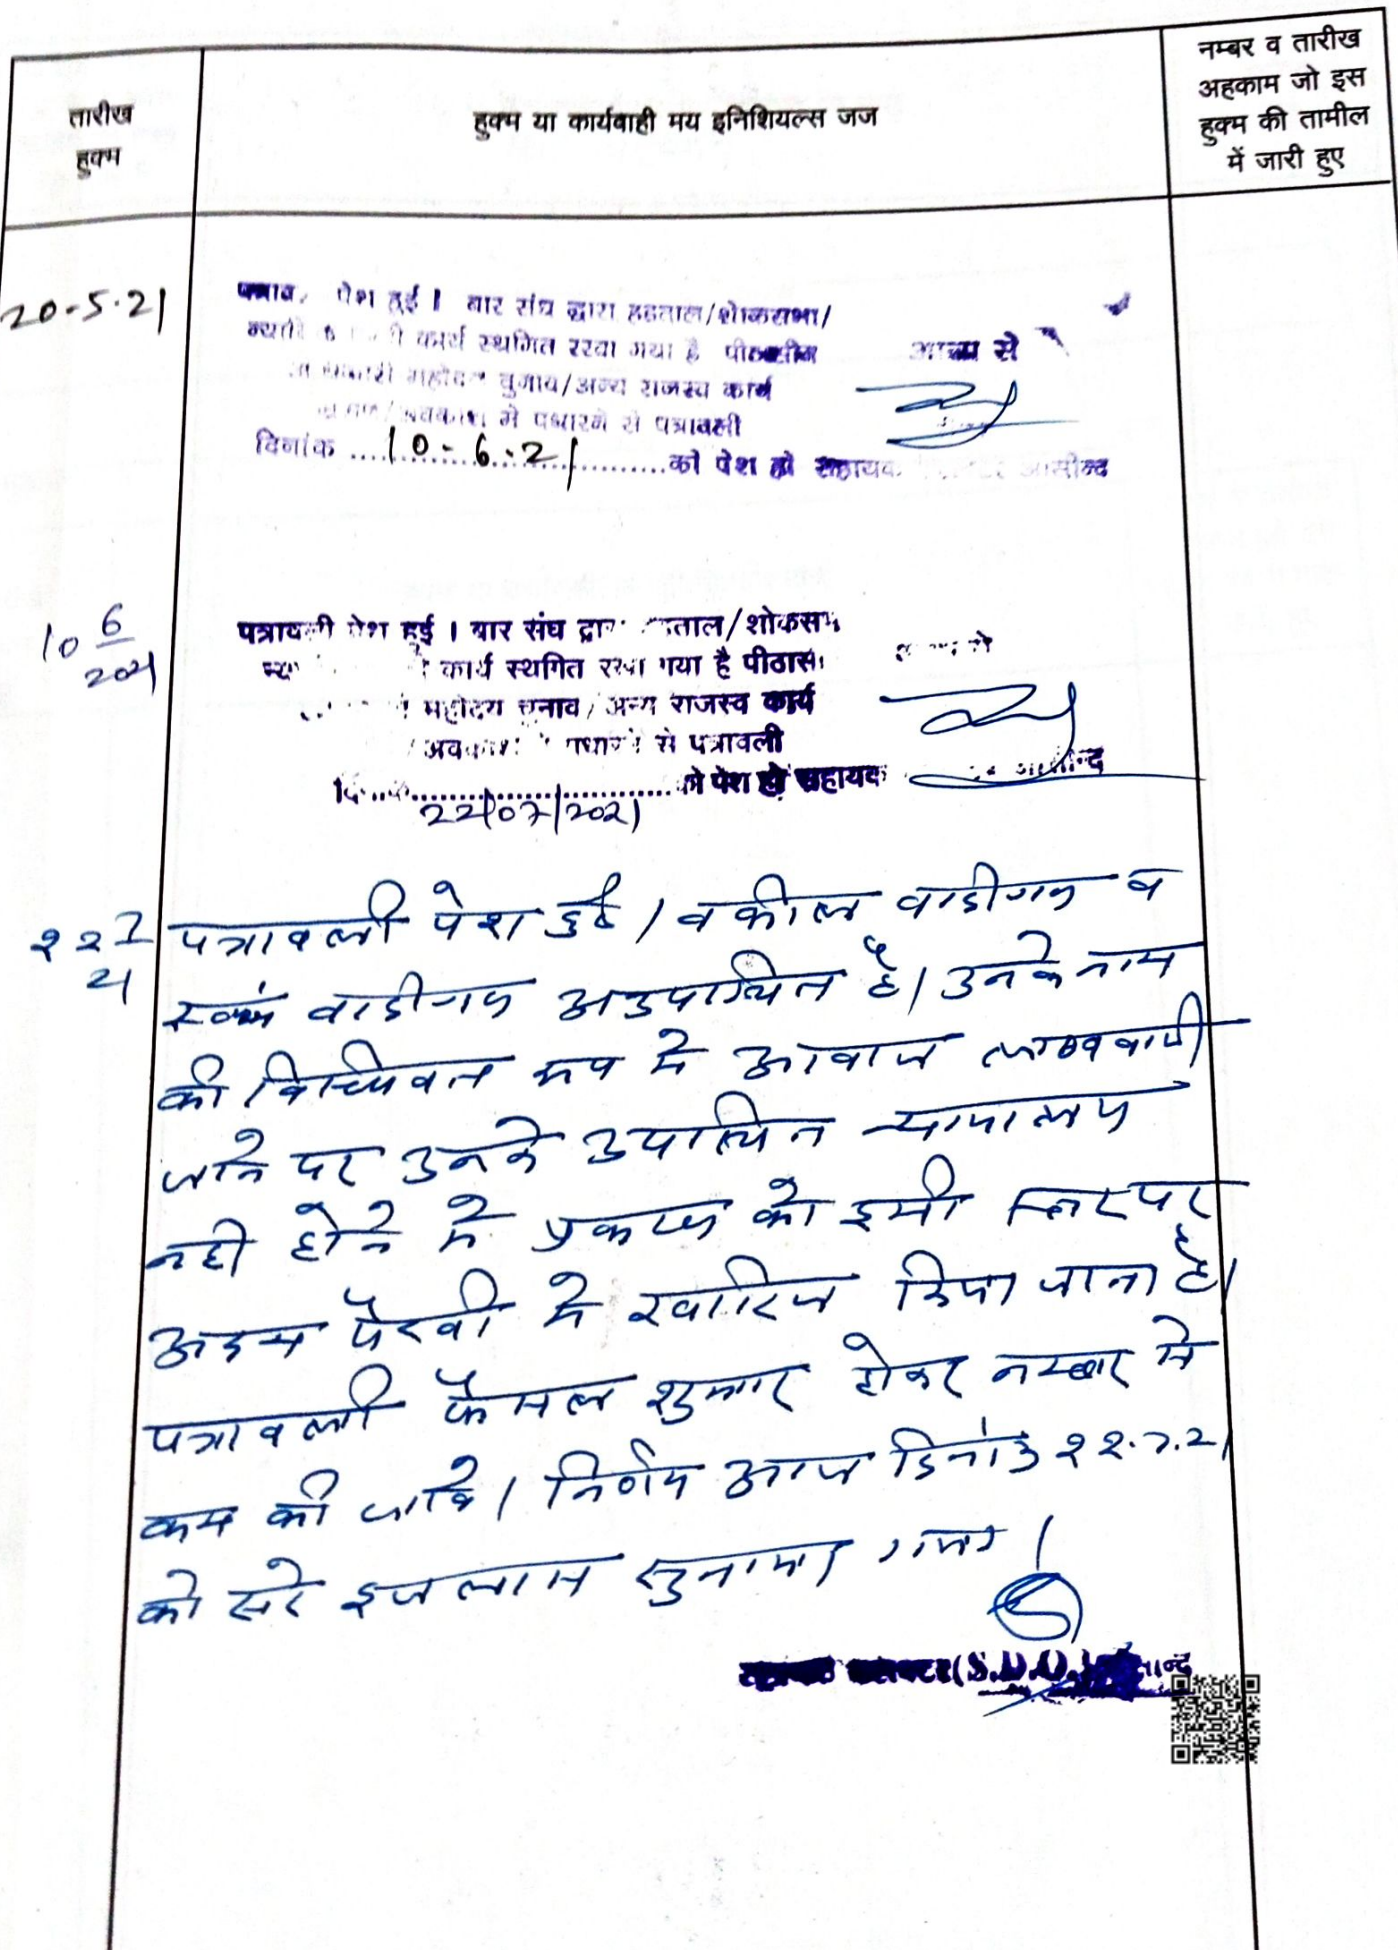 तारीख
हुक्म
हुक्म या कार्यवाही मय इनिशियल्स जज
नम्बर व तारीख
अहकाम जो इस
हुक्म की तामील
में जारी हुए
20-5-21
पेश हुई । बार संघ द्वारा हड़ताल/शोकसभा/
कार्य स्थगित रखा गया है
आज्ञा से
महोदय चुनाव/अन्य राजस्व कार्य
अवकाश में पधारने से पत्रावली
दिनांक 10-6-21 को पेश हो सहायक आसीन्द
10 6/2021
पत्रावली पेश हुई । बार संघ द्वारा /शोकसभ
कार्य स्थगित रखा गया है
महोदय चुनाव/अन्य राजस्व कार्य
से पत्रावली
को पेश हो सहायक
22/07/2021
22 7/21
पत्रावली पेश हुई । वकील वादीगण व
स्वयं वादीगण अनुपस्थित है । उनके नाम
की विधिवत रूप से आवाज लगवायी
जाने पर उनके उपस्थित न्यायालय
नही होने से प्रकरण को इसी स्तर पर
अदम पैरवी में खारिज किया जाता है ।
पत्रावली फैसल शुमार होकर नम्बर से
कम की जावे । निर्णय आज दिनांक 22.7.21
को सरे इजलास सुनाया गया ।
(S.D.O.)